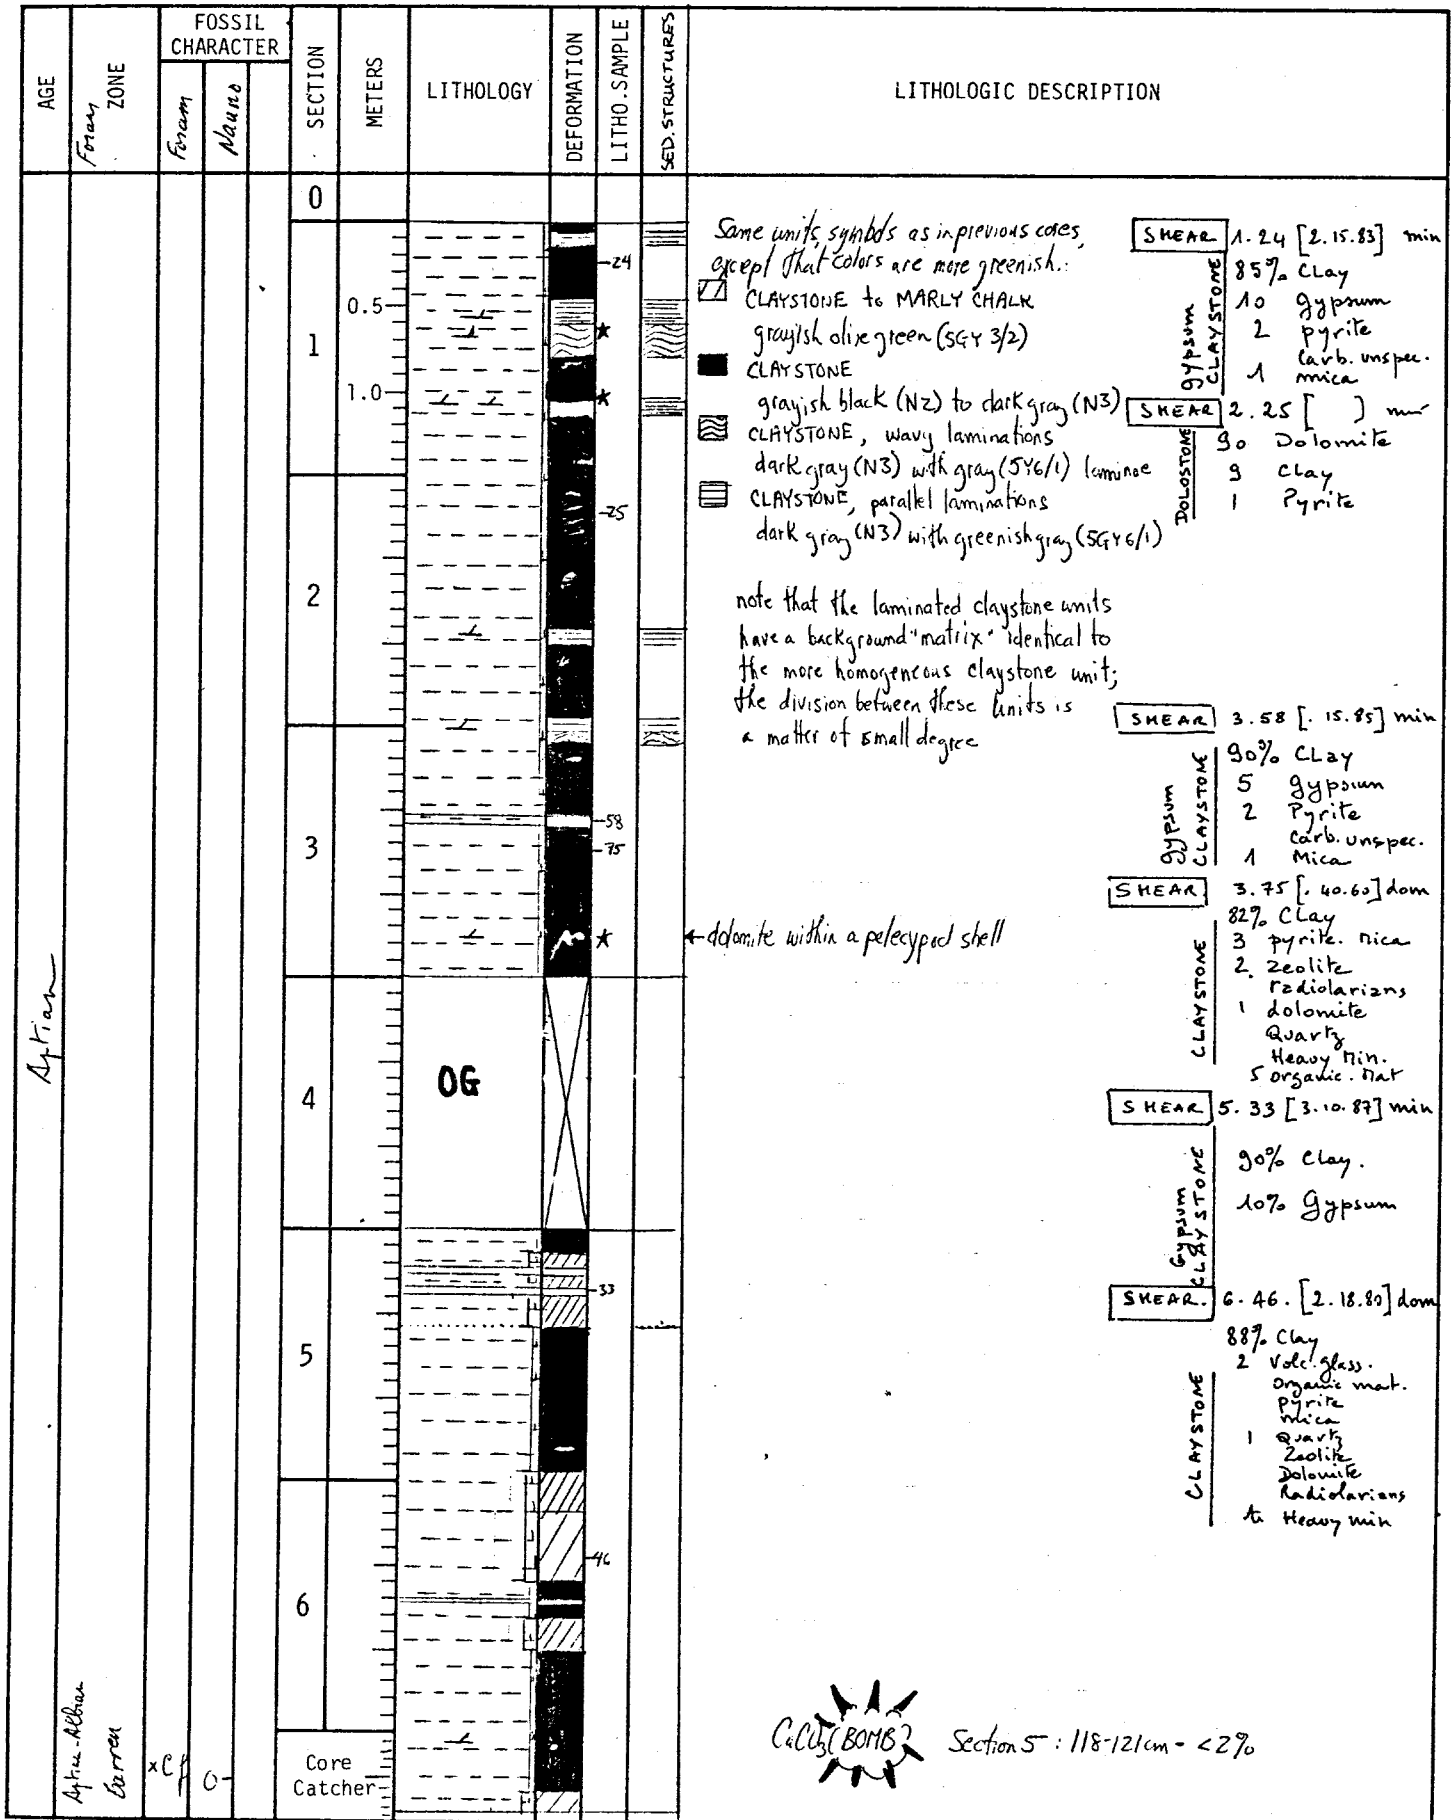 AGE
Foram ZONE
FOSSIL CHARACTER
Foram
Nanno
SECTION
METERS
LITHOLOGY
DEFORMATION
LITHO.SAMPLE
SED.STRUCTURES
LITHOLOGIC DESCRIPTION
0
1
0.5
1.0
2
3
4
5
6
Core
Catcher
OG
24
25
58
75
33
46
Aptian
Aptian-Albian
Barren
×Cf
0-
Same units, symbols as in previous cores,
except that colors are more greenish.:
CLAYSTONE to MARLY CHALK
grayish olive green (5GY 3/2)
CLAYSTONE
grayish black (N2) to dark gray (N3)
CLAYSTONE, wavy laminations
dark gray (N3) with gray (5Y6/1) laminae
CLAYSTONE, parallel laminations
dark gray (N3) with greenish gray (5GY6/1)
note that the laminated claystone units
have a background "matrix" identical to
the more homogeneous claystone unit;
the division between these units is
a matter of small degree
←dolomite within a pelecypod shell
SMEAR 1.24 [2.15.83] min
gypsum
CLAYSTONE
85% Clay
10 gypsum
2 pyrite
Carb. unspec.
1 mica
SMEAR 2.25 [ ] min
DOLOSTONE
90 Dolomite
9 Clay
1 Pyrite
SMEAR 3.58 [. 15.85] min
gypsum
CLAYSTONE
90% CLay
5 gypsum
2 Pyrite
Carb. unspec.
1 Mica
SMEAR 3.75 [. 40.60] dom
CLAYSTONE
82% Clay
3 pyrite. Mica
2. Zeolite
radiolarians
1 dolomite
Quartz
Heavy Min.
5 organic. Mat
SMEAR 5.33 [3.10.87] min
Gypsum
CLAYSTONE
90% Clay.
10% Gypsum
SMEAR. 6.46. [2.18.80] dom
CLAYSTONE
88% Clay
2 Volc. glass.
Organic mat.
pyrite
mica
1 Quartz
Zeolite
Dolomite
Radiolarians
tr Heavy min
CaCO3 (BOMB) Section 5 : 118-121cm - <2%